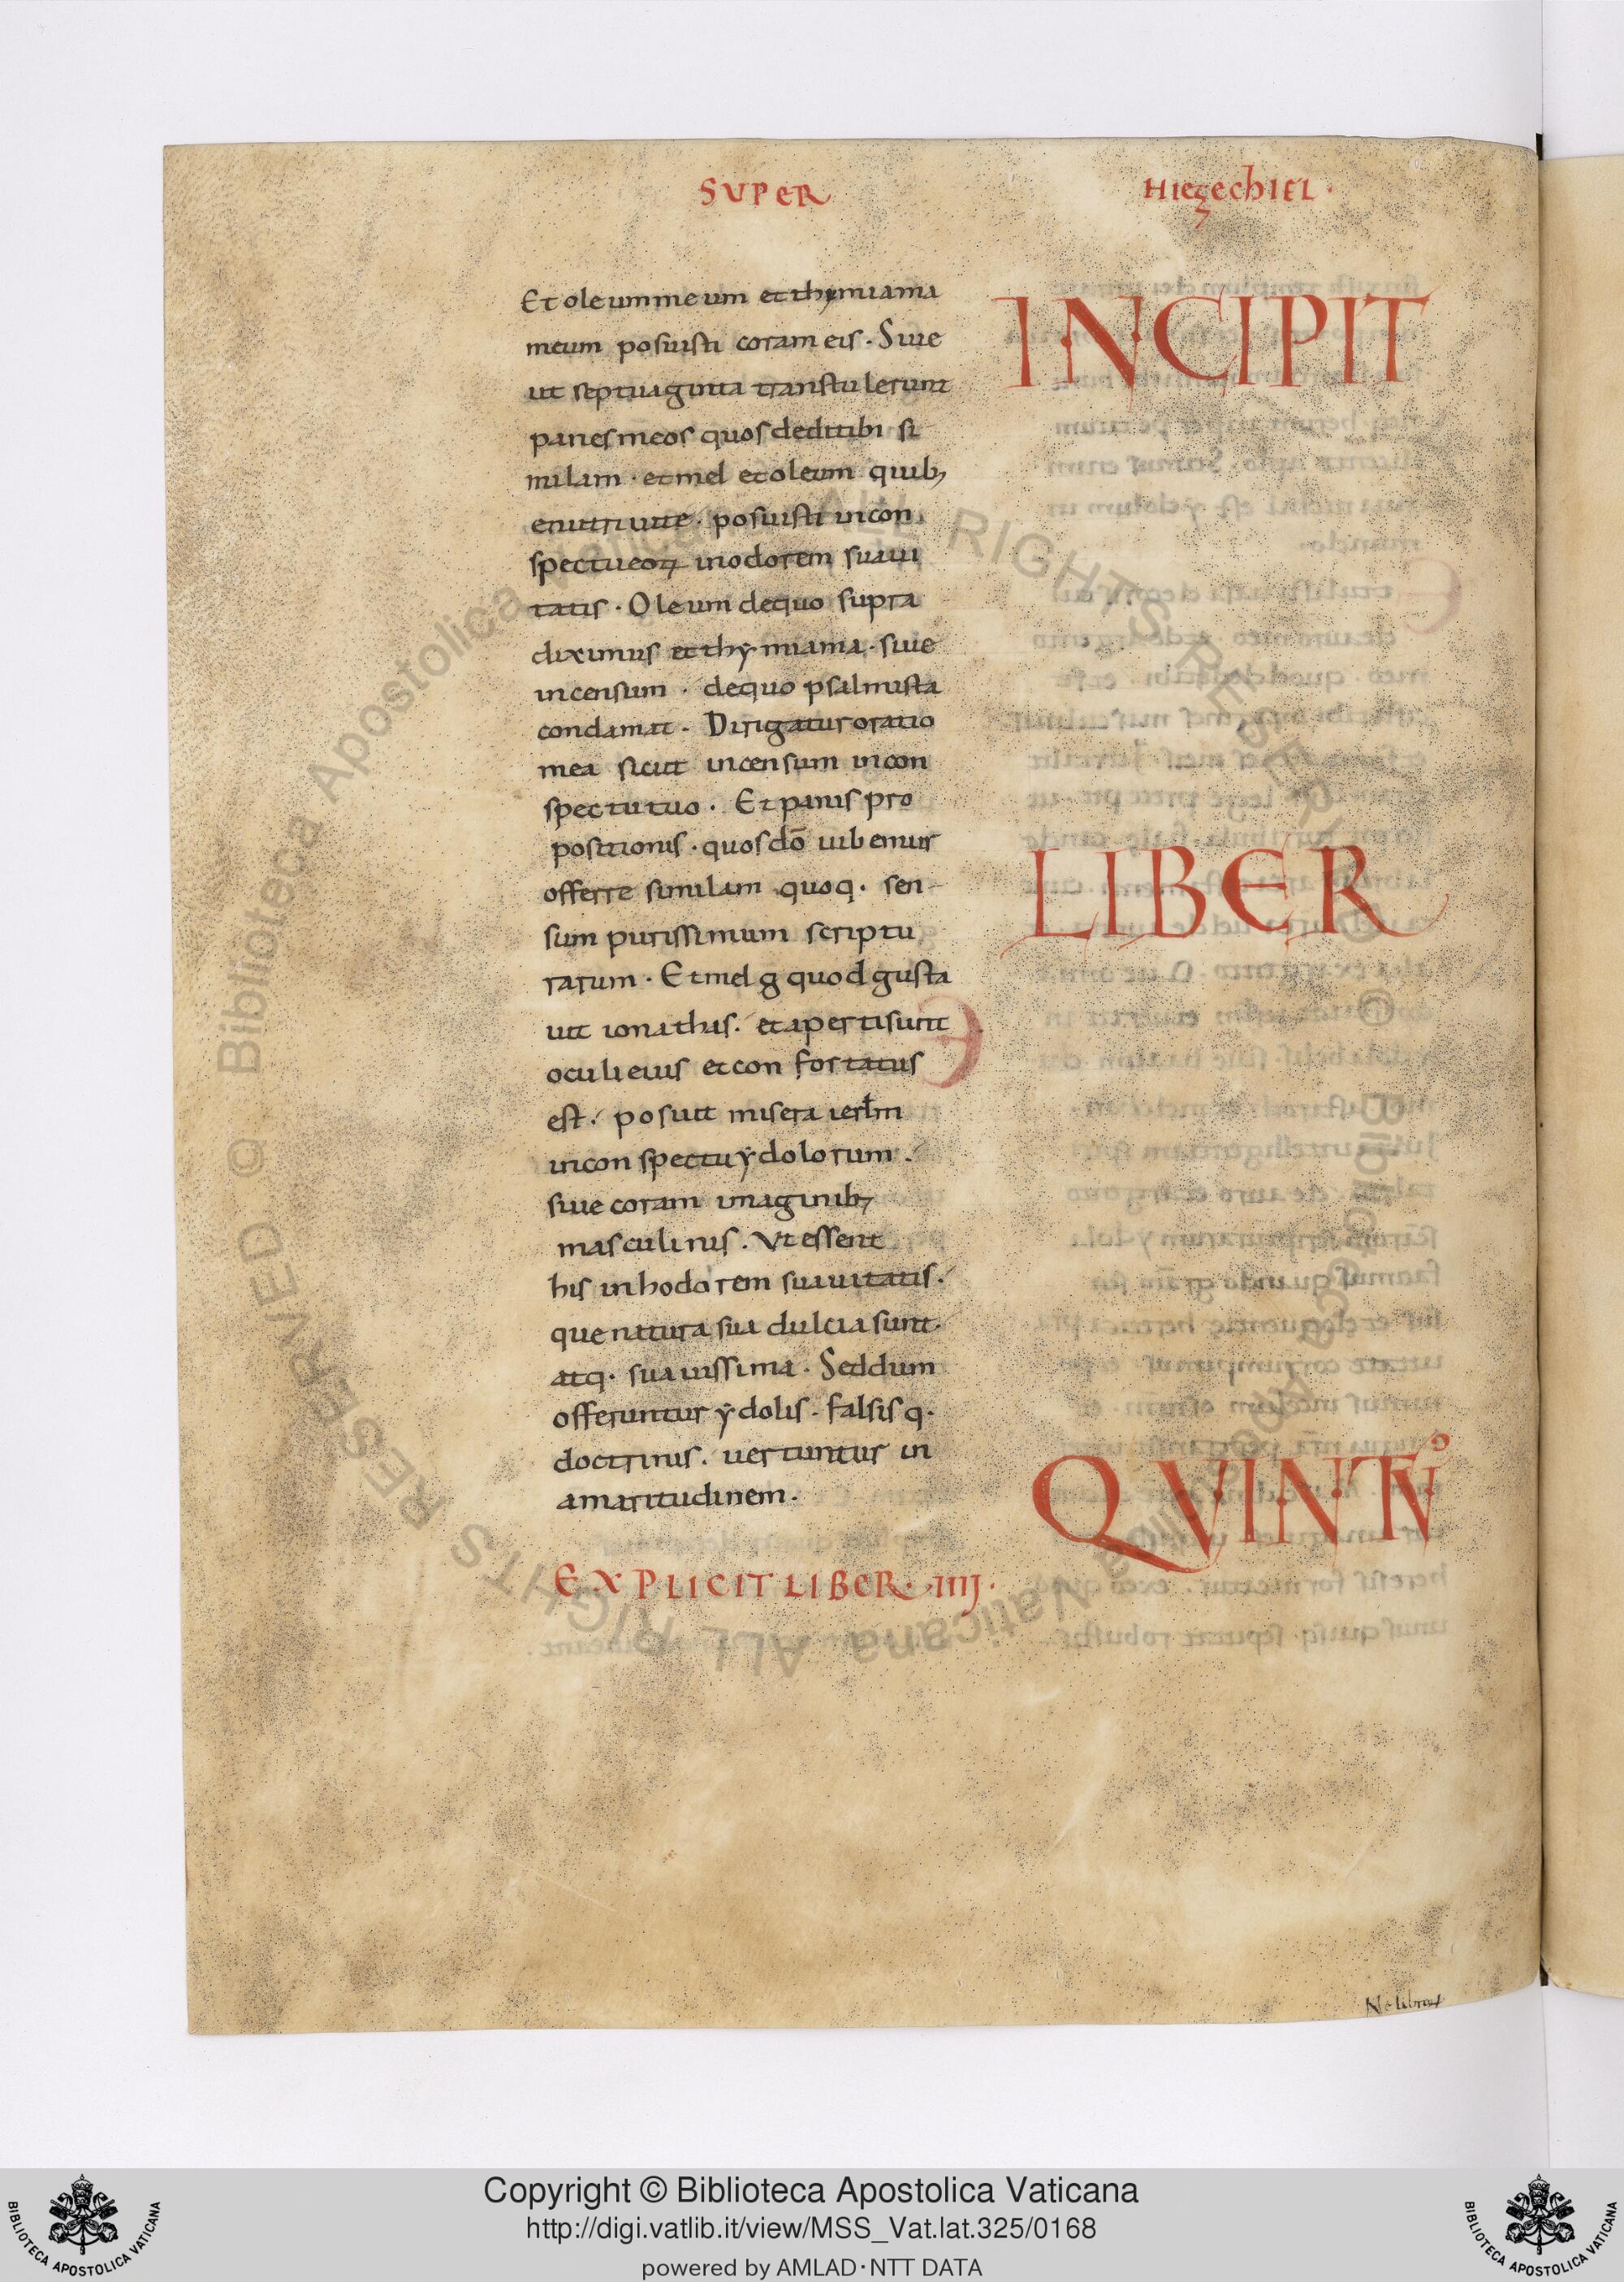 SVPER
HIEZECHIEL ·
Et oleum meum et thymiama
meum posuisti coram eis · Siue
ut septuaginta transtulerunt
panes meos quos dedi tibi si
milam · et mel et oleum quib;
enutriui te · posuisti in con
spectu eoꝝ in odorem suaui
tatis · Oleum de quo supra
diximus et thẏmiama · siue
incensum · de quo psalmista
condamat · Dirigatur oratio
mea sicut incensum in con
spectu tuo · Et panis pro
positionis · quos dō iubemur
offerre similam quoq · sen
sum purissimum scriptu
rarum · Et mel g quod gusta
uit ionathas · et aperti sunt
oculi eius et con fortatus
est · posuit misera ierłm
in con spectu ẏdolorum ·
siue coram imaginib;
masculinis · Vt essent
his in hodorem suauitatis ·
que natura sua dulcia sunt ·
atq · suauissima · Sed dum
offeruntur ẏdolis · falsis q ·
doctrinis · uertuntur in
amaritudinem ·
EXPLICIT LIBER · IIIJ ·
INCIPIT
LIBER
QVINTVꝰ
© Biblioteca Apostolica Vaticana ALL RIGHTS RESERVED © Biblioteca Apostolica Vaticana ALL RIGHTS RESERVED
Copyright © Biblioteca Apostolica Vaticana
http://digi.vatlib.it/view/MSS_Vat.lat.325/0168
powered by AMLAD·NTT DATA
BIBLIOTECA APOSTOLICA VATICANA
BIBLIOTECA APOSTOLICA VATICANA